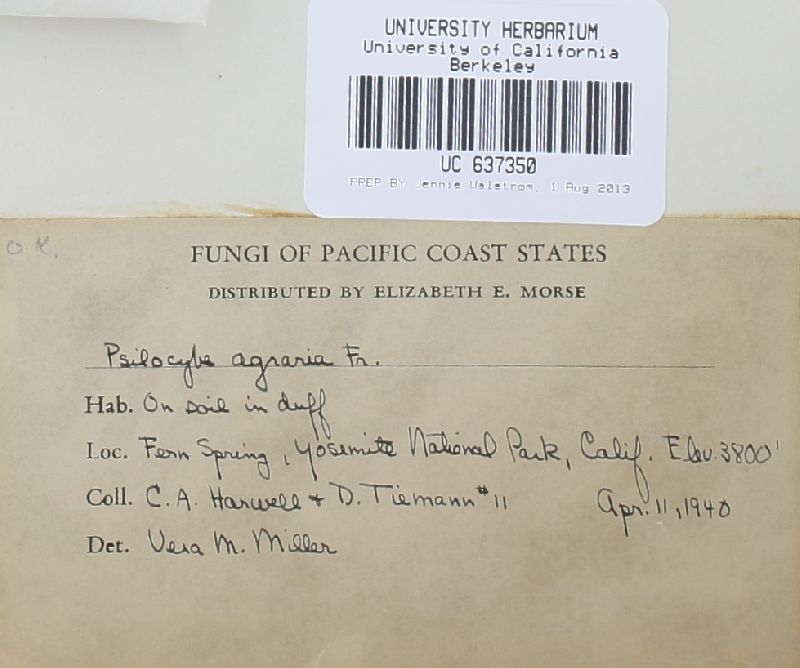 UNIVERSITY HERBARIUM
University of California
Berkeley
UC 637350
PREP BY Jennie Walstrom, 1 Aug 2013
O.K.
FUNGI OF PACIFIC COAST STATES
DISTRIBUTED BY ELIZABETH E. MORSE
Psilocybe agraria Fr.
Hab. On soil in duff
Loc. Fern Spring, Yosemite National Park, Calif. Elev. 3800'
Coll. C. A. Harwell + D. Tiemann #11 Apr. 11, 1940
Det. Vera M. Miller